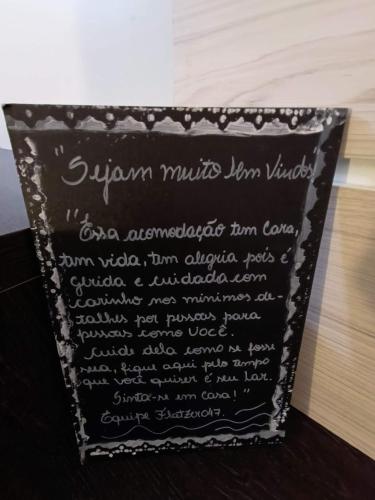 "Sejam muito bem Vindos"
"Essa acomodação tem Cara,
tem vida, tem alegria pois é
gerida e cuidada com
carinho nos mínimos de-
talhes por pessoas para
pessoas como VOCÊ.
Cuide dela como se fosse
sua, fique aqui pelo tempo
que você quiser é seu Lar.
Sinta-se em Casa!"
Equipe Flatzer047.